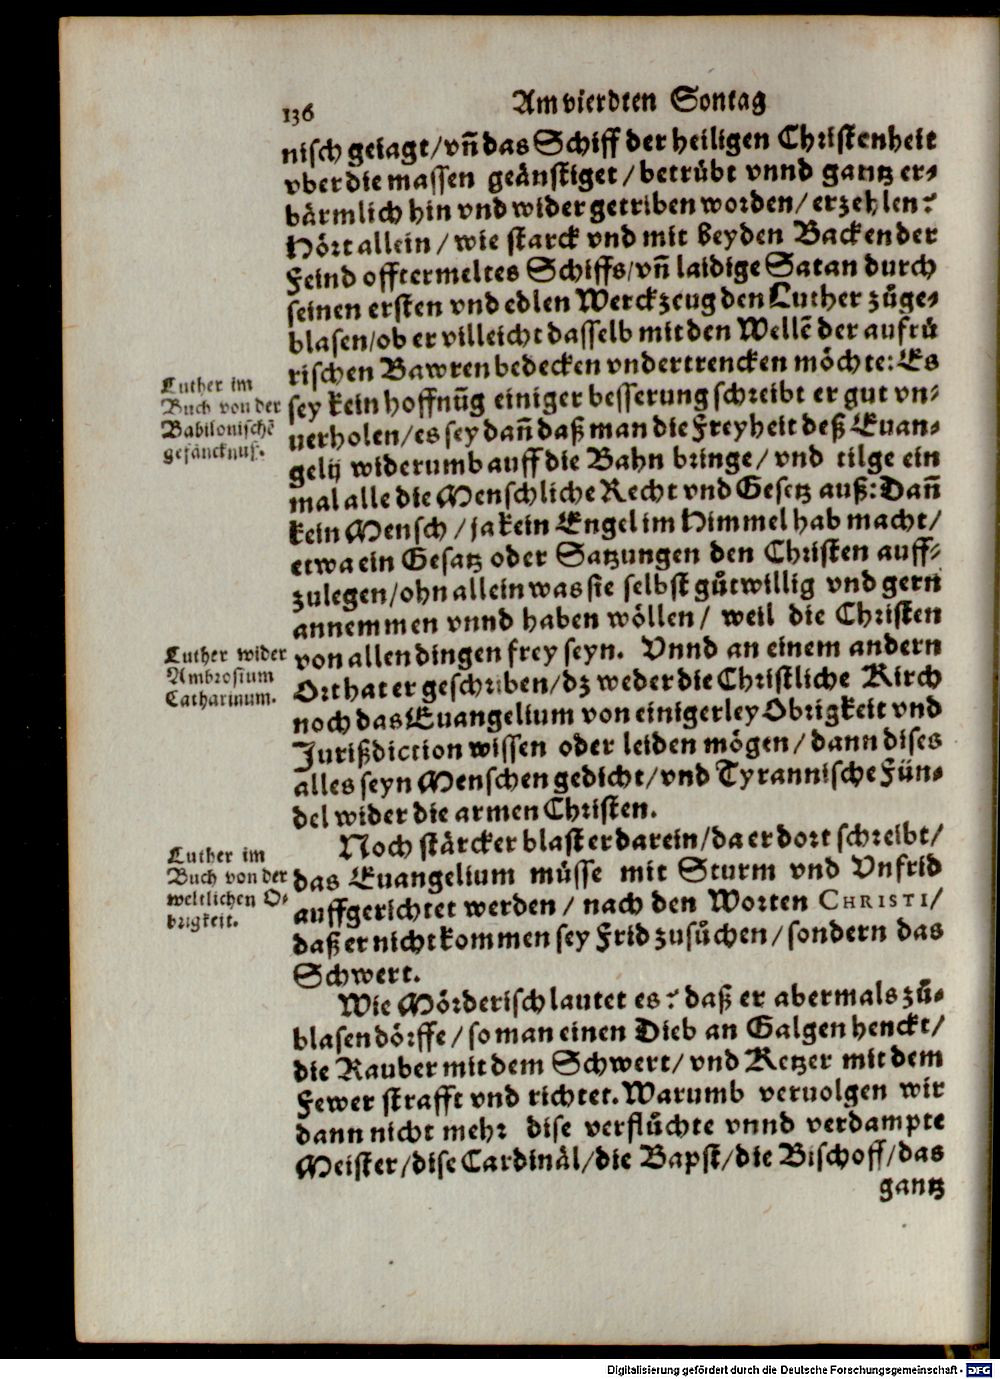 136
Am vierdten Sontag
nisch gejagt/ vñ das Schiff der heiligen Christenheit
vber die massen geänstiget / betrübt vnnd gantz er-
bärmlich hin vnd wider getriben worden/ erzehlen?
Hört allein / wie starck vnd mit beyden Backen der
Feind offtermeltes Schiffs/ vñ laidige Satan durch
seinen ersten vnd edlen Werckzeug den Luther zůge-
blasen/ob er villeicht dasselb mit den Wellẽ der aufrü
rischen Bawren bedecken vnd ertrencken möchte: Es
Luther im
Buch von der
Babilonischẽ
gefäncknus.
sey kein hoffnũg einiger besserung schreibt er gut vn-
uerholen/es sey dañ daß man die Freyheit deß Euan-
gelij widerumb auff die Bahn bringe/ vnd tilge ein
mal alle die Menschliche Recht vnd Gesetz auß: Dañ
kein Mensch / ja kein Engel im Himmel hab macht/
etwa ein Gesatz oder Satzungen den Christen auff-
zulegen/ohn allein was sie selbst gůtwillig vnd gern
annemmen vnnd haben wöllen/ weil die Christen
Luther wider
Ambrosium
Catharinum.
von allen dingen frey seyn. Vnnd an einem andern
Ort hat er geschriben/dz weder die Christliche Kirch
noch das Euangelium von einigerley Obrigkeit vnd
Jurißdiction wissen oder leiden mögen/ dann dises
alles seyn Menschen gedicht/ vnd Tyrannische Fün-
del wider die armen Christen.
Noch stärcker blast er darein/da er dort schreibt/
Luther im
Buch von der
weltlichen O-
brigkeit.
das Euangelium müsse mit Sturm vnd Vnfrid
auffgerichtet werden / nach den Worten CHRISTI/
daß er nicht kommen sey Frid zusůchen / sondern das
Schwert.
Wie Mörderisch lautet es? daß er abermals zů-
blasen dörffe / so man einen Dieb an Galgen henckt/
die Rauber mit dem Schwert/ vnd Ketzer mit dem
Fewer strafft vnd richtet. Warumb veruolgen wir
dann nicht mehr dise verflůchte vnnd verdampte
Meister/dise Cardinäl/die Bapst/die Bischoff/das
gantz
Digitalisierung gefördert durch die Deutsche Forschungsgemeinschaft - DFG